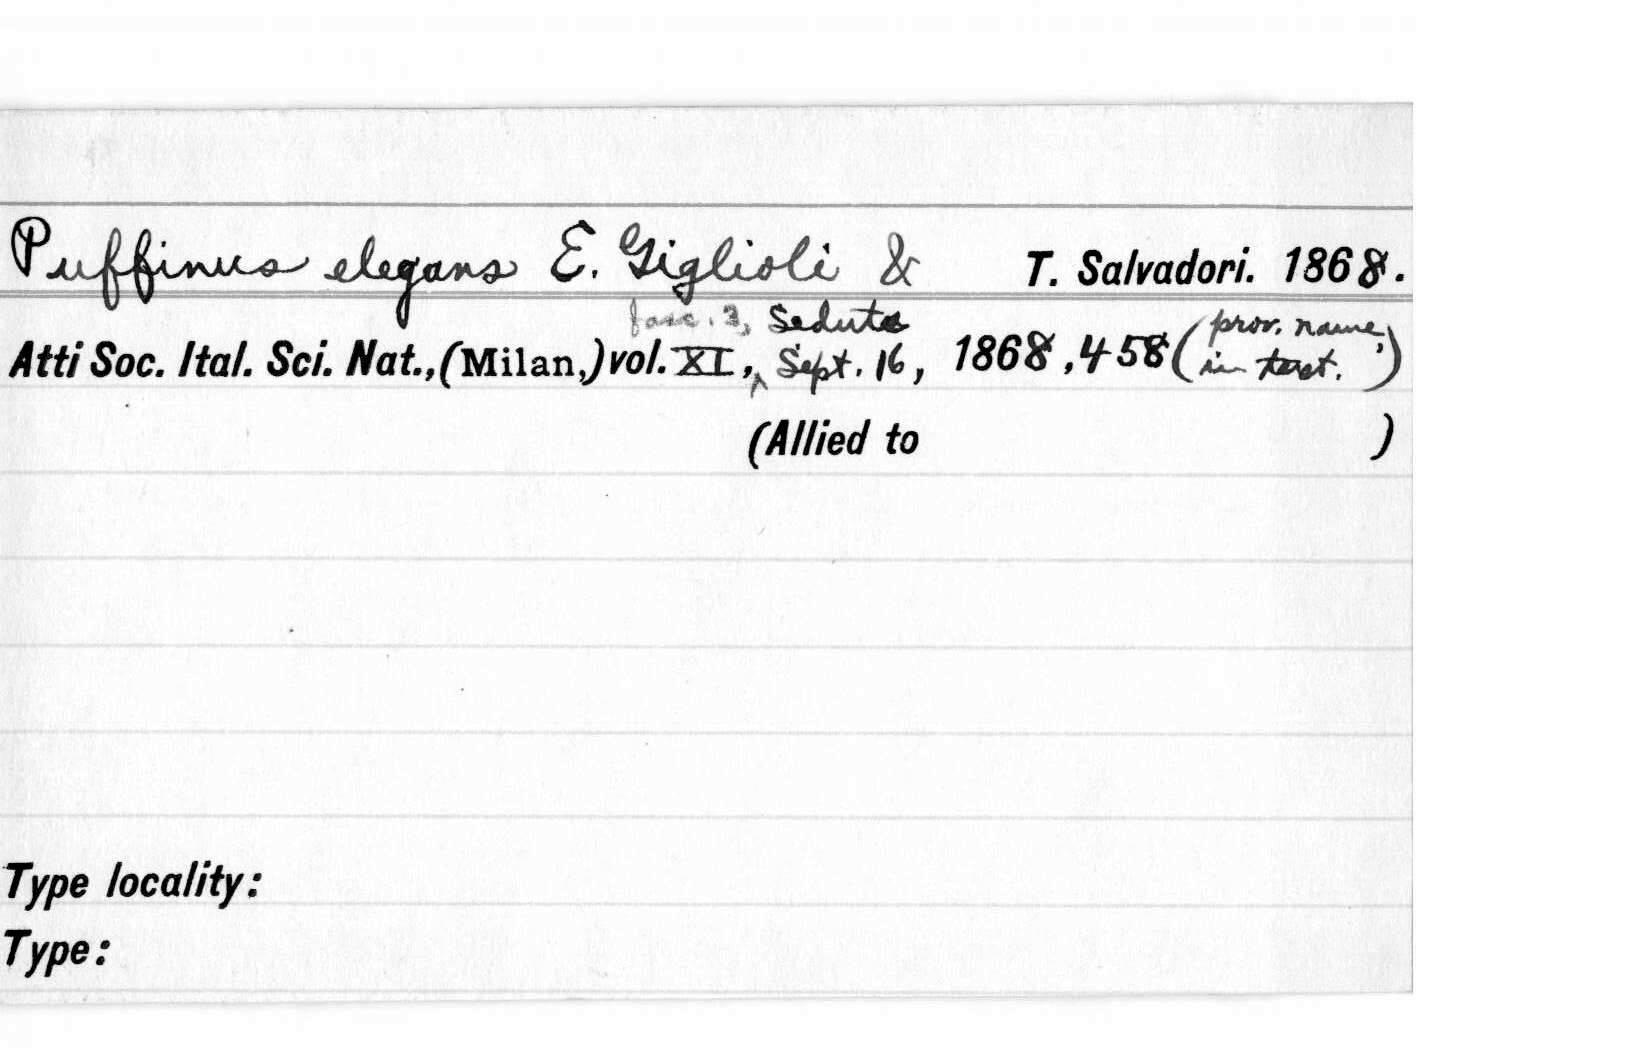 Puffinus elegans E. Giglioli & T. Salvadori. 1868.
fasc. 3, Seduta
Atti Soc. Ital. Sci. Nat., (Milan,) vol. XI, ^ Sept. 16, 1868, 458 (prov. name, in text.)
(Allied to )
Type locality:
Type: